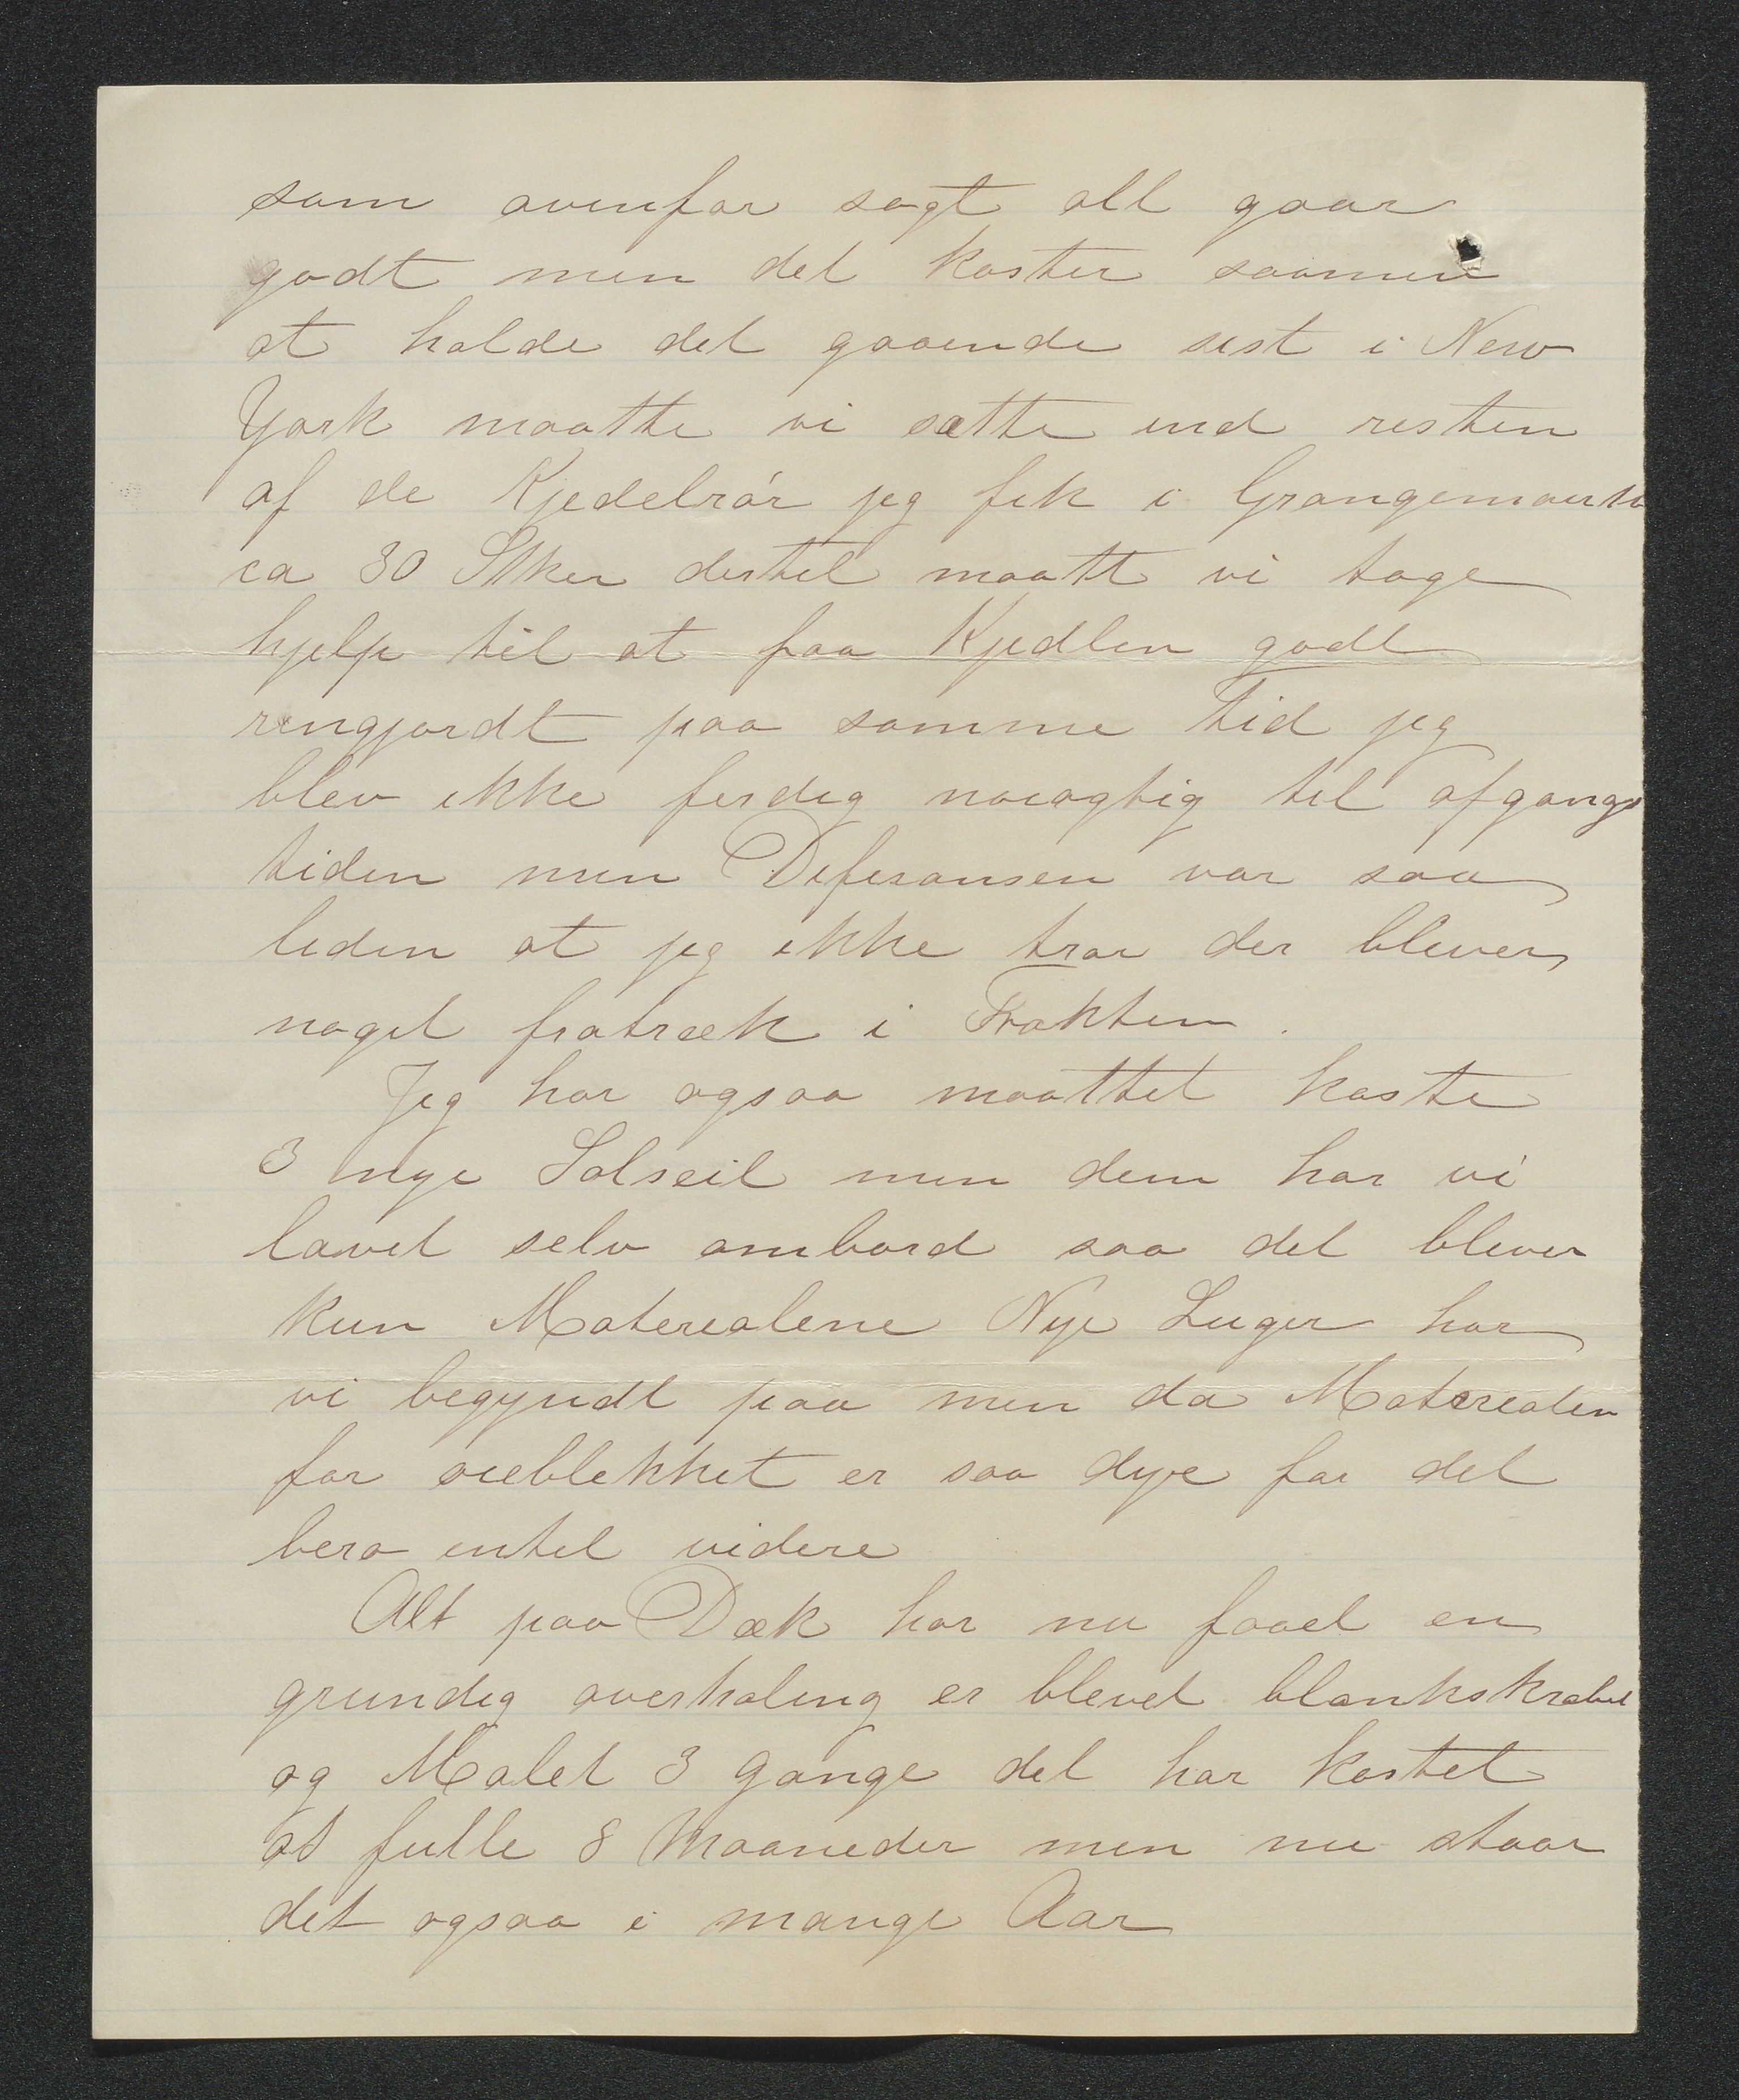 som ovenfor sagt alt gaar
godt men det koster saamen
at holde det gaaende sist i New
York maatte vi sætte ind resten
af de Kjedelrör jeg fik i Grangemouth
ca 30 Stker dertil maatt vi tage
hjelp til at faa Kjedlen godt
rengjordt paa samme Tid jeg
blev ikke ferdig nøiagtig til afgangs
tiden men Diferansen var saa
liden at jeg ikke tror der bliver
noget fratræk i Frakten.
Jeg har ogsaa maattet koste
3 nye Solseil men dem har vi
lavet selv ombord saa det bliver
kun Materialene Nye Luger har
vi begyndt paa men da Materialen
for øieblikket er saa dyre faar det
bero intil videre
Alt paa Dæk har nu faaet en
grundig overhaling er blevet blankskrabet
og Malet 3 gange det har kostet
os fulle 8 Maaneder men nu staar
det ogsaa i mange Aar